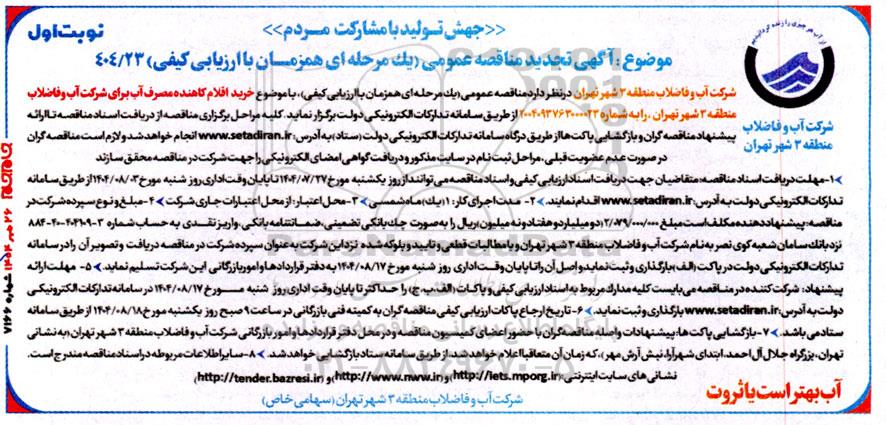 <<جهش تولید با مشارکت مردم>>
نوبت اول
موضوع: آگهی تجدید مناقصه عمومی (یک مرحله ای همزمان با ارزیابی کیفی) ۴۰۴/۲۳
شرکت آب و فاضلاب
منطقه ۳ شهر تهران
شرکت آب و فاضلاب منطقه ۳ شهر تهران در نظر دارد مناقصه عمومی (یک مرحله ای همزمان با ارزیابی کیفی)، با موضوع خرید اقلام کاهنده مصرف آب برای شرکت آب و فاضلاب
منطقه ۳ شهر تهران. را به شماره ۲۰۰۴۰۹۳۷۶۳۰۰۰۰۲۳ از طریق سامانه تدارکات الکترونیکی دولت برگزار نماید. کلیه مراحل برگزاری مناقصه از دریافت اسناد مناقصه تا ارائه
پیشنهاد مناقصه گران و بازگشایی پاکت ها از طریق درگاه سامانه تدارکات الکترونیکی دولت (ستاد) به آدرس: www.setadiran.ir انجام خواهد شد و لازم است مناقصه گران
در صورت عدم عضویت قبلی، مراحل ثبت نام در سایت مذکور و دریافت گواهی امضای الکترونیکی را جهت شرکت در مناقصه محقق سازند
۱- مهلت دریافت اسناد مناقصه: متقاضیان جهت دریافت اسناد ارزیابی کیفی و اسناد مناقصه می توانند از روز یکشنبه مورخ ۱۴۰۴/۰۷/۲۷ تا پایان وقت اداری روز شنبه مورخ ۱۴۰۴/۰۸/۰۳ از طریق سامانه
تدارکات الکترونیکی دولت به آدرس: www.setadiran.ir اقدام نمایند. ۲- مدت اجرای کار: ۱ (یک) ماه شمسی ۳- محل اعتبار: از محل اعتبارات جاری شرکت ۴- مبلغ و نوع سپرده شرکت در
مناقصه: پیشنهاد دهنده مکلف است مبلغ ۲/۰۷۹/۰۰۰/۰۰۰ (دو میلیارد و هفتاد و نه میلیون ریال) را به صورت چک بانکی تضمینی، ضمانتنامه بانکی، واریز نقدی به حساب شماره ۳-۴۰۴۱۰۹-۴۰-۸۸۴
نزد بانک سامان شعبه کوی نصر به نام شرکت آب و فاضلاب منطقه ۳ شهر تهران و یا مطالبات قطعی و تایید و بلوکه شده نزد این شرکت به عنوان سپرده شرکت در مناقصه دریافت و تصویر آن را در سامانه
تدارکات الکترونیکی دولت در پاکت (الف) بارگذاری و ثبت نماید و اصل آن را تا پایان وقت اداری روز شنبه مورخ ۱۴۰۴/۰۸/۱۷ به دفتر قراردادها و امور بازرگانی این شرکت تسلیم نماید. ۵- مهلت ارائه
پیشنهاد: شرکت کننده در مناقصه می بایست کلیه مدارک مربوط به اسناد ارزیابی کیفی و پاکات (الف، ب، ج) را حداکثر تا پایان وقت اداری روز شنبه مورخ ۱۴۰۴/۰۸/۱۷ در سامانه تدارکات الکترونیکی
www.setadiran.ir بارگذاری و ثبت نماید. ۶- تاریخ ارجاع پاکات ارزیابی کیفی مناقصه گران به کمیته فنی بازرگانی در ساعت ۹ صبح روز یکشنبه مورخ ۱۴۰۴/۰۸/۱۸ از طریق سامانه
ستاد می باشد. ۷- بازگشایی پاکت ها: پیشنهادات واصله مناقصه گران با حضور اعضای کمیسیون مناقصه و در محل دفتر قراردادها و امور بازرگانی شرکت آب و فاضلاب منطقه ۳ شهر تهران (به نشانی
تهران، بزرگراه جلال آل احمد، ابتدای شهر آرا، نبش آرش مهر)، که زمان آن متعاقبا اعلام خواهد شد، از طریق سامانه ستاد بازگشایی خواهد شد. ۸- سایر اطلاعات مربوطه در اسناد مناقصه مندرج است.
نشانی های سایت اینترنتی: (http://iets.mporg.ir) و (http://www.nww.ir) و (http://tender.bazresi.ir)
آب بهتر است یا ثروت
شرکت آب و فاضلاب منطقه ۳ شهر تهران (سهامی خاص)
۲۶ مهر ۱۴۰۴ شماره ۷۱۶۶
ParsNamadData
پایگاه اطلاع رسانی مناقصه و مزایده
۰۲۱-۸۸۳۴۹۶۷۰-۵